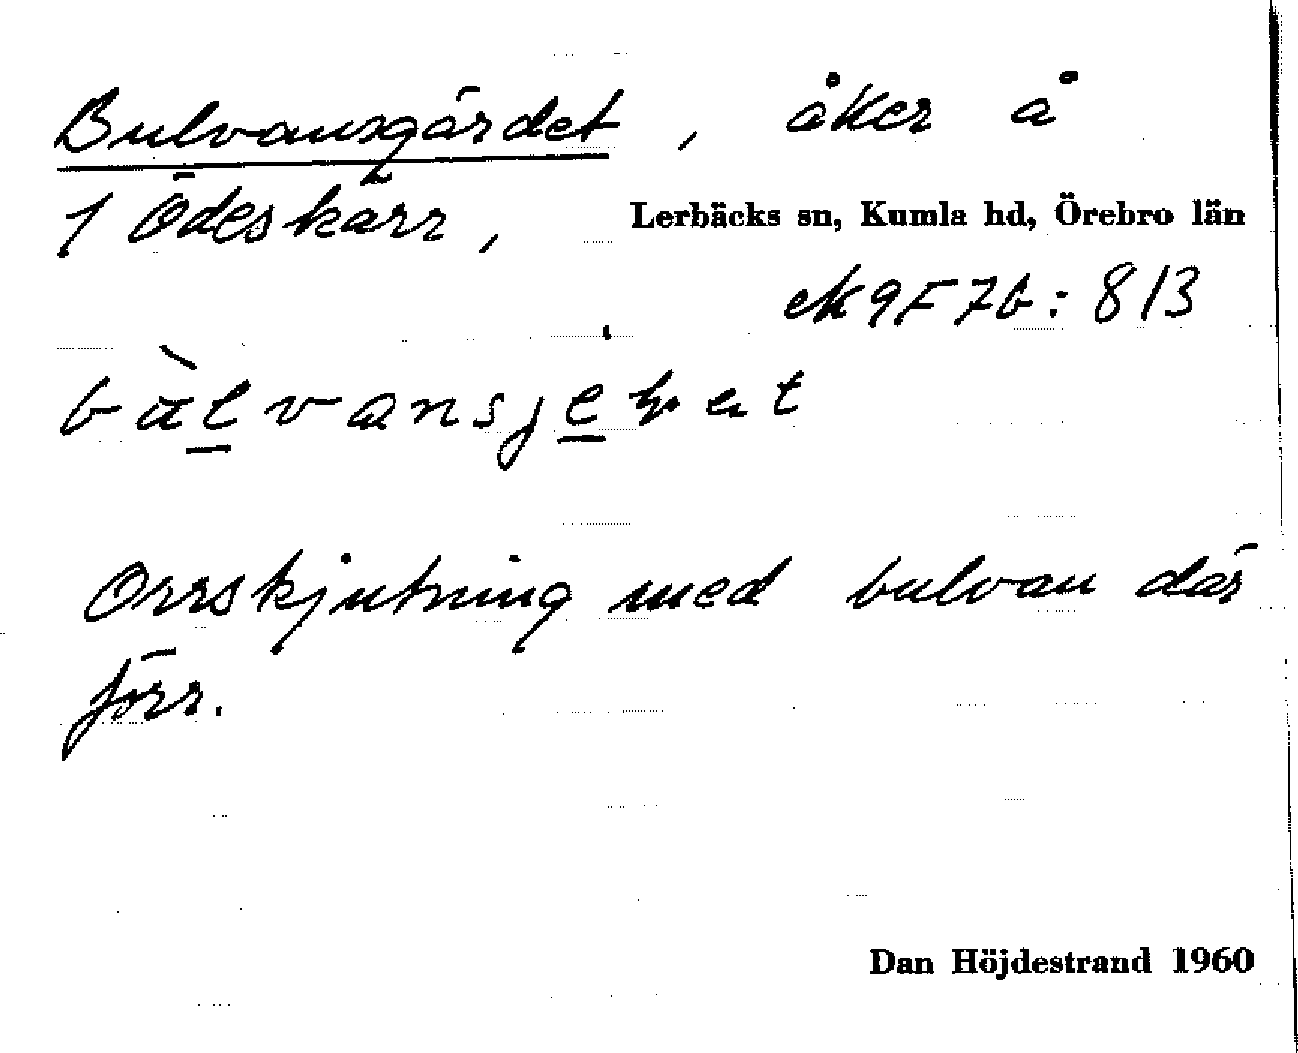 Bulvansgärdet, åker å
1 Ödeskärr,
Lerbäcks sn, Kumla hd, Örebro län
ek 9F7b: 813
Orrskjutning med bulvan där
förr.
Dan Höjdestrand 1960